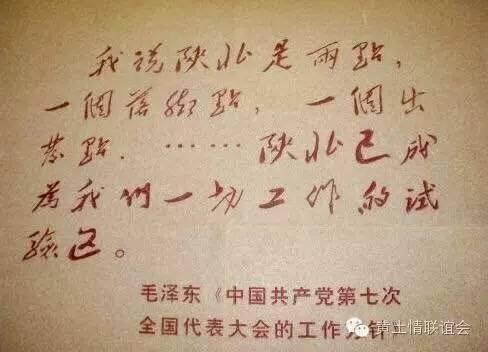 我说陕北是兩點，
一個落腳點，一個出
發點．……陕北已成
為我們一切工作的試
驗区。
毛泽东《中国共产党第七次
全国代表大会的工作方针
黄土情联谊会